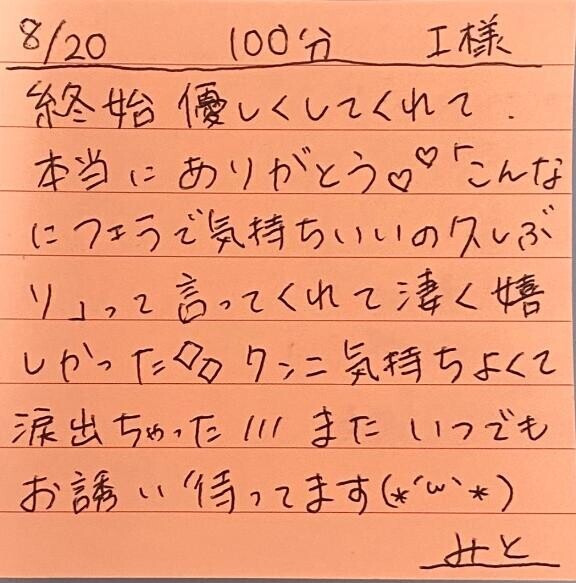 8/20 100分 I様
終始優しくしてくれて.
本当にありがとう♡♡「こんな
にフェラで気持ちいいの久しぶ
り」って言ってくれて凄く嬉
しかった◇◇クンニ気持ちよくて
涙出ちゃった///またいつでも
お誘い待ってます(*´ω`*)
みと